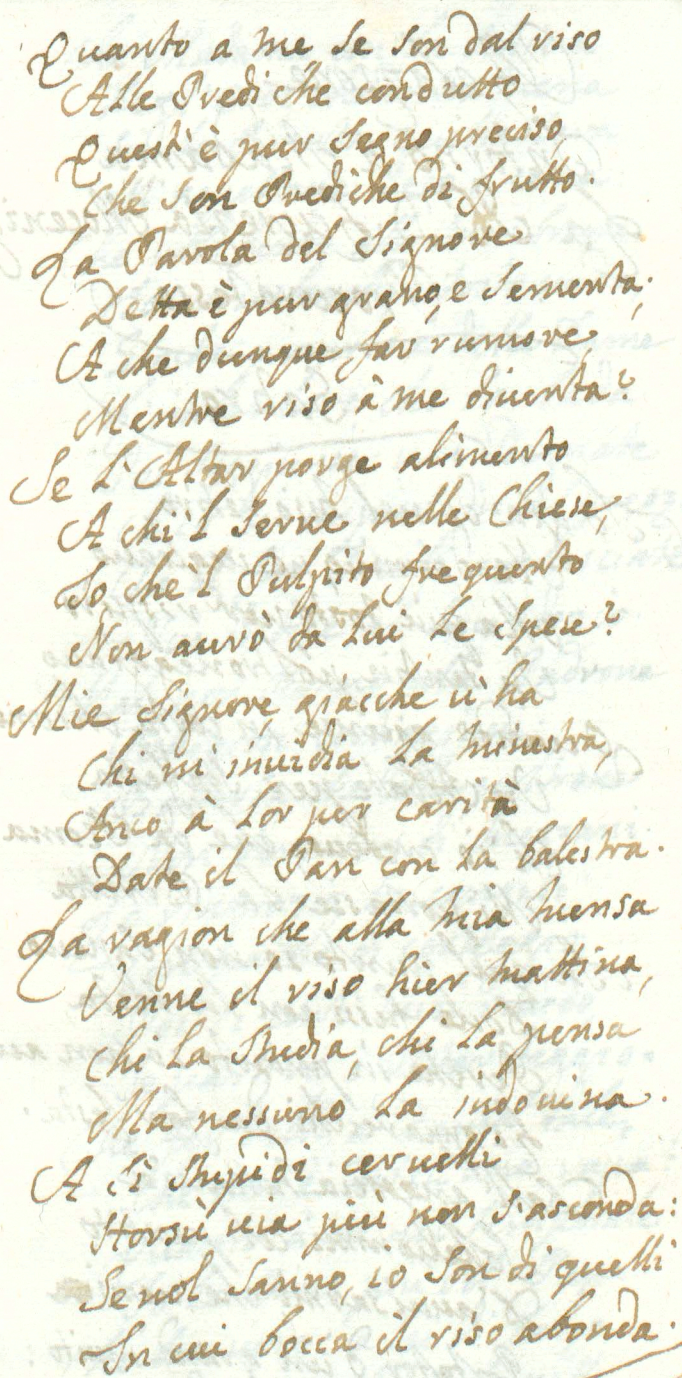 Quanto a me se son dal riso
Alle Prediche condutto
Quest'è pur segno preciso,
Che son Prediche di frutto.
La Parola del Signore
Detta è pur grano, e sementa;
A che dunque far rumore,
Mentre riso à me diuenta?
Se l'Altar porge alimento
A chi'l serue nelle Chiese,
Io, che'l Pulpito frequento
Non aurò da lui le spese?
Mie Signore, giacche ui ha
Chi m'inuidia la minestra,
Anco à lor per carità
Date il Pan con la balestra.
La ragion che alla mia mensa
Venne il riso hier mattina,
Chi la studia, chi la pensa
Ma nessuno la indouina.
A sì stupidi ceruelli
Horsù uia più non s'asconda:
Se nol sanno, io son di quelli
In cui bocca il riso abonda.